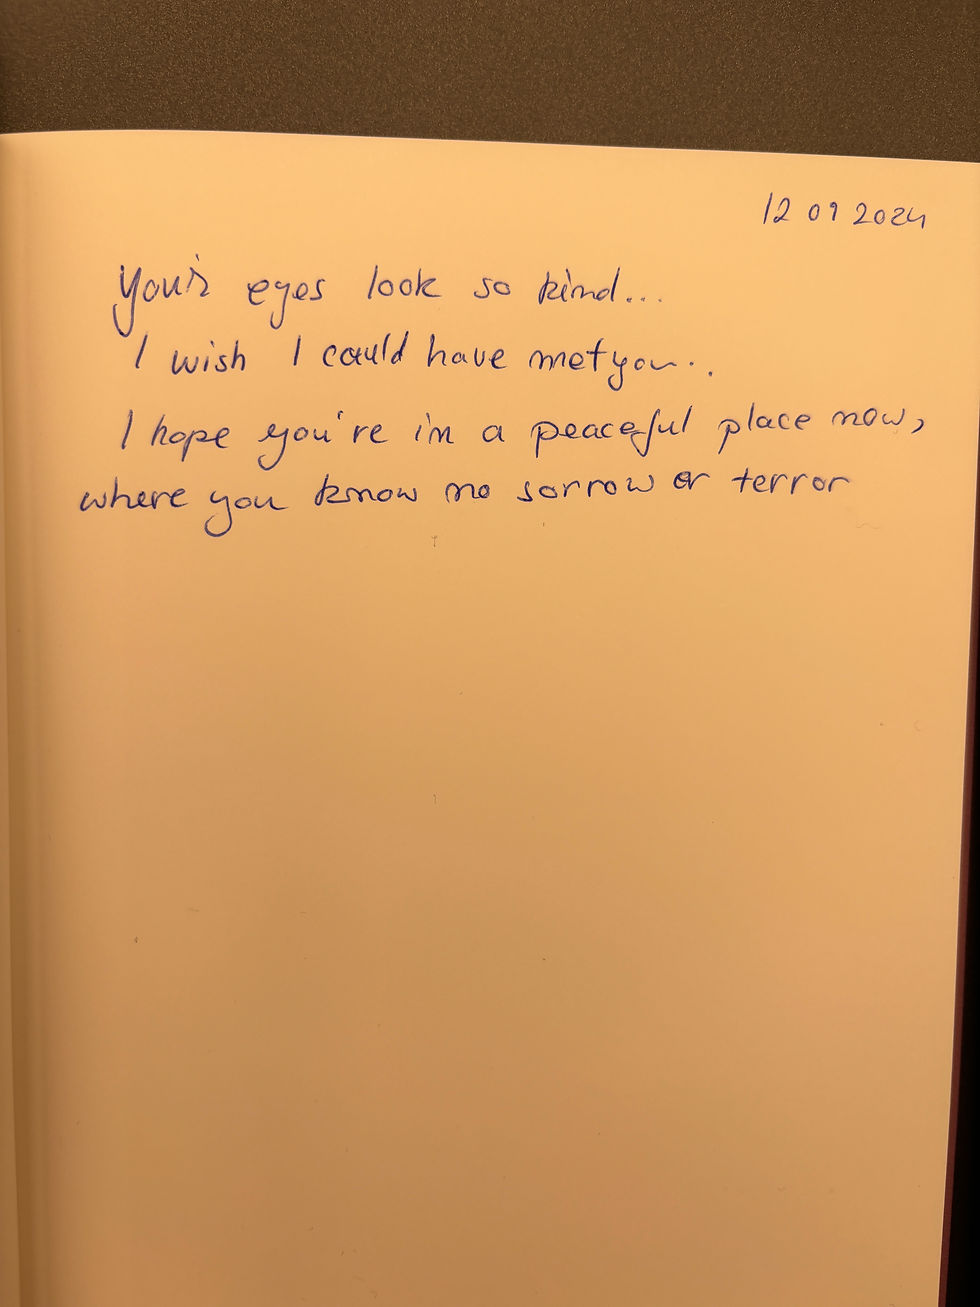 12 09 2024
your eyes look so kind...
I wish I could have met you...
I hope you're in a peaceful place now,
where you know no sorrow or terror